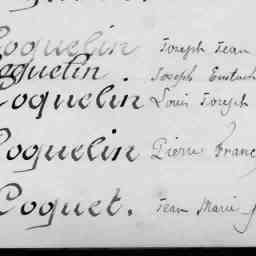 Coquelin Joseph Jean
Coquelin. Joseph Eustach
Coquelin Louis Joseph
Coquelin Pierre Franç
Coquet. Jean Marie